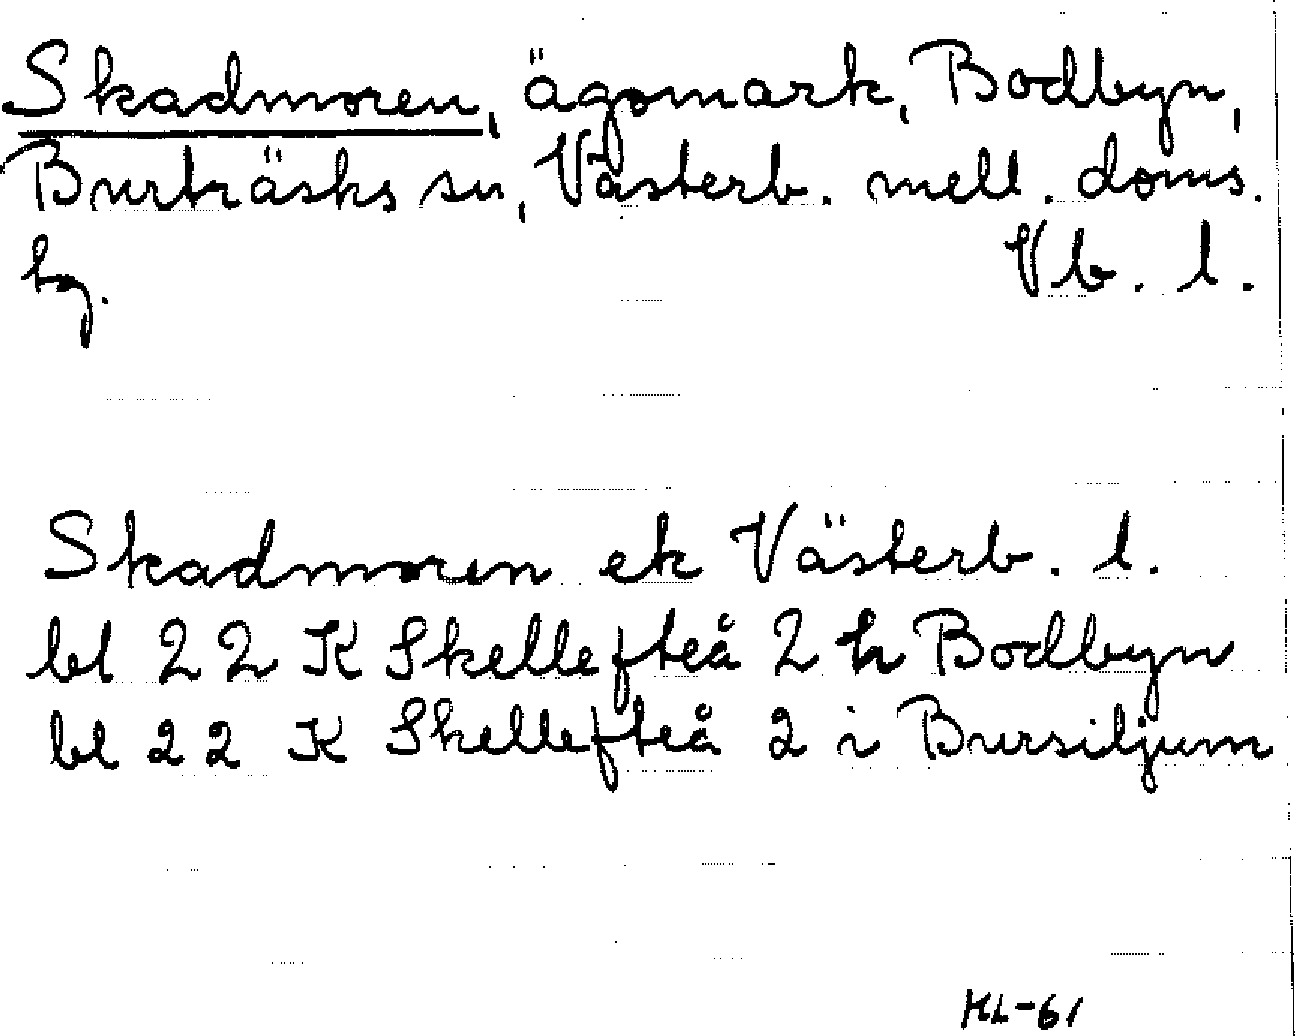 Skadmoren, ägomark, Bodbyn,
Burträsks sn, Västerb. mell. doms.
hg. Vb. l.
Skadmoren ek Västerb. l.
bl 22 K Skellefteå 2 h Bodbyn
bl 22 K Skellefteå 2 i Bursiljum
HL-61